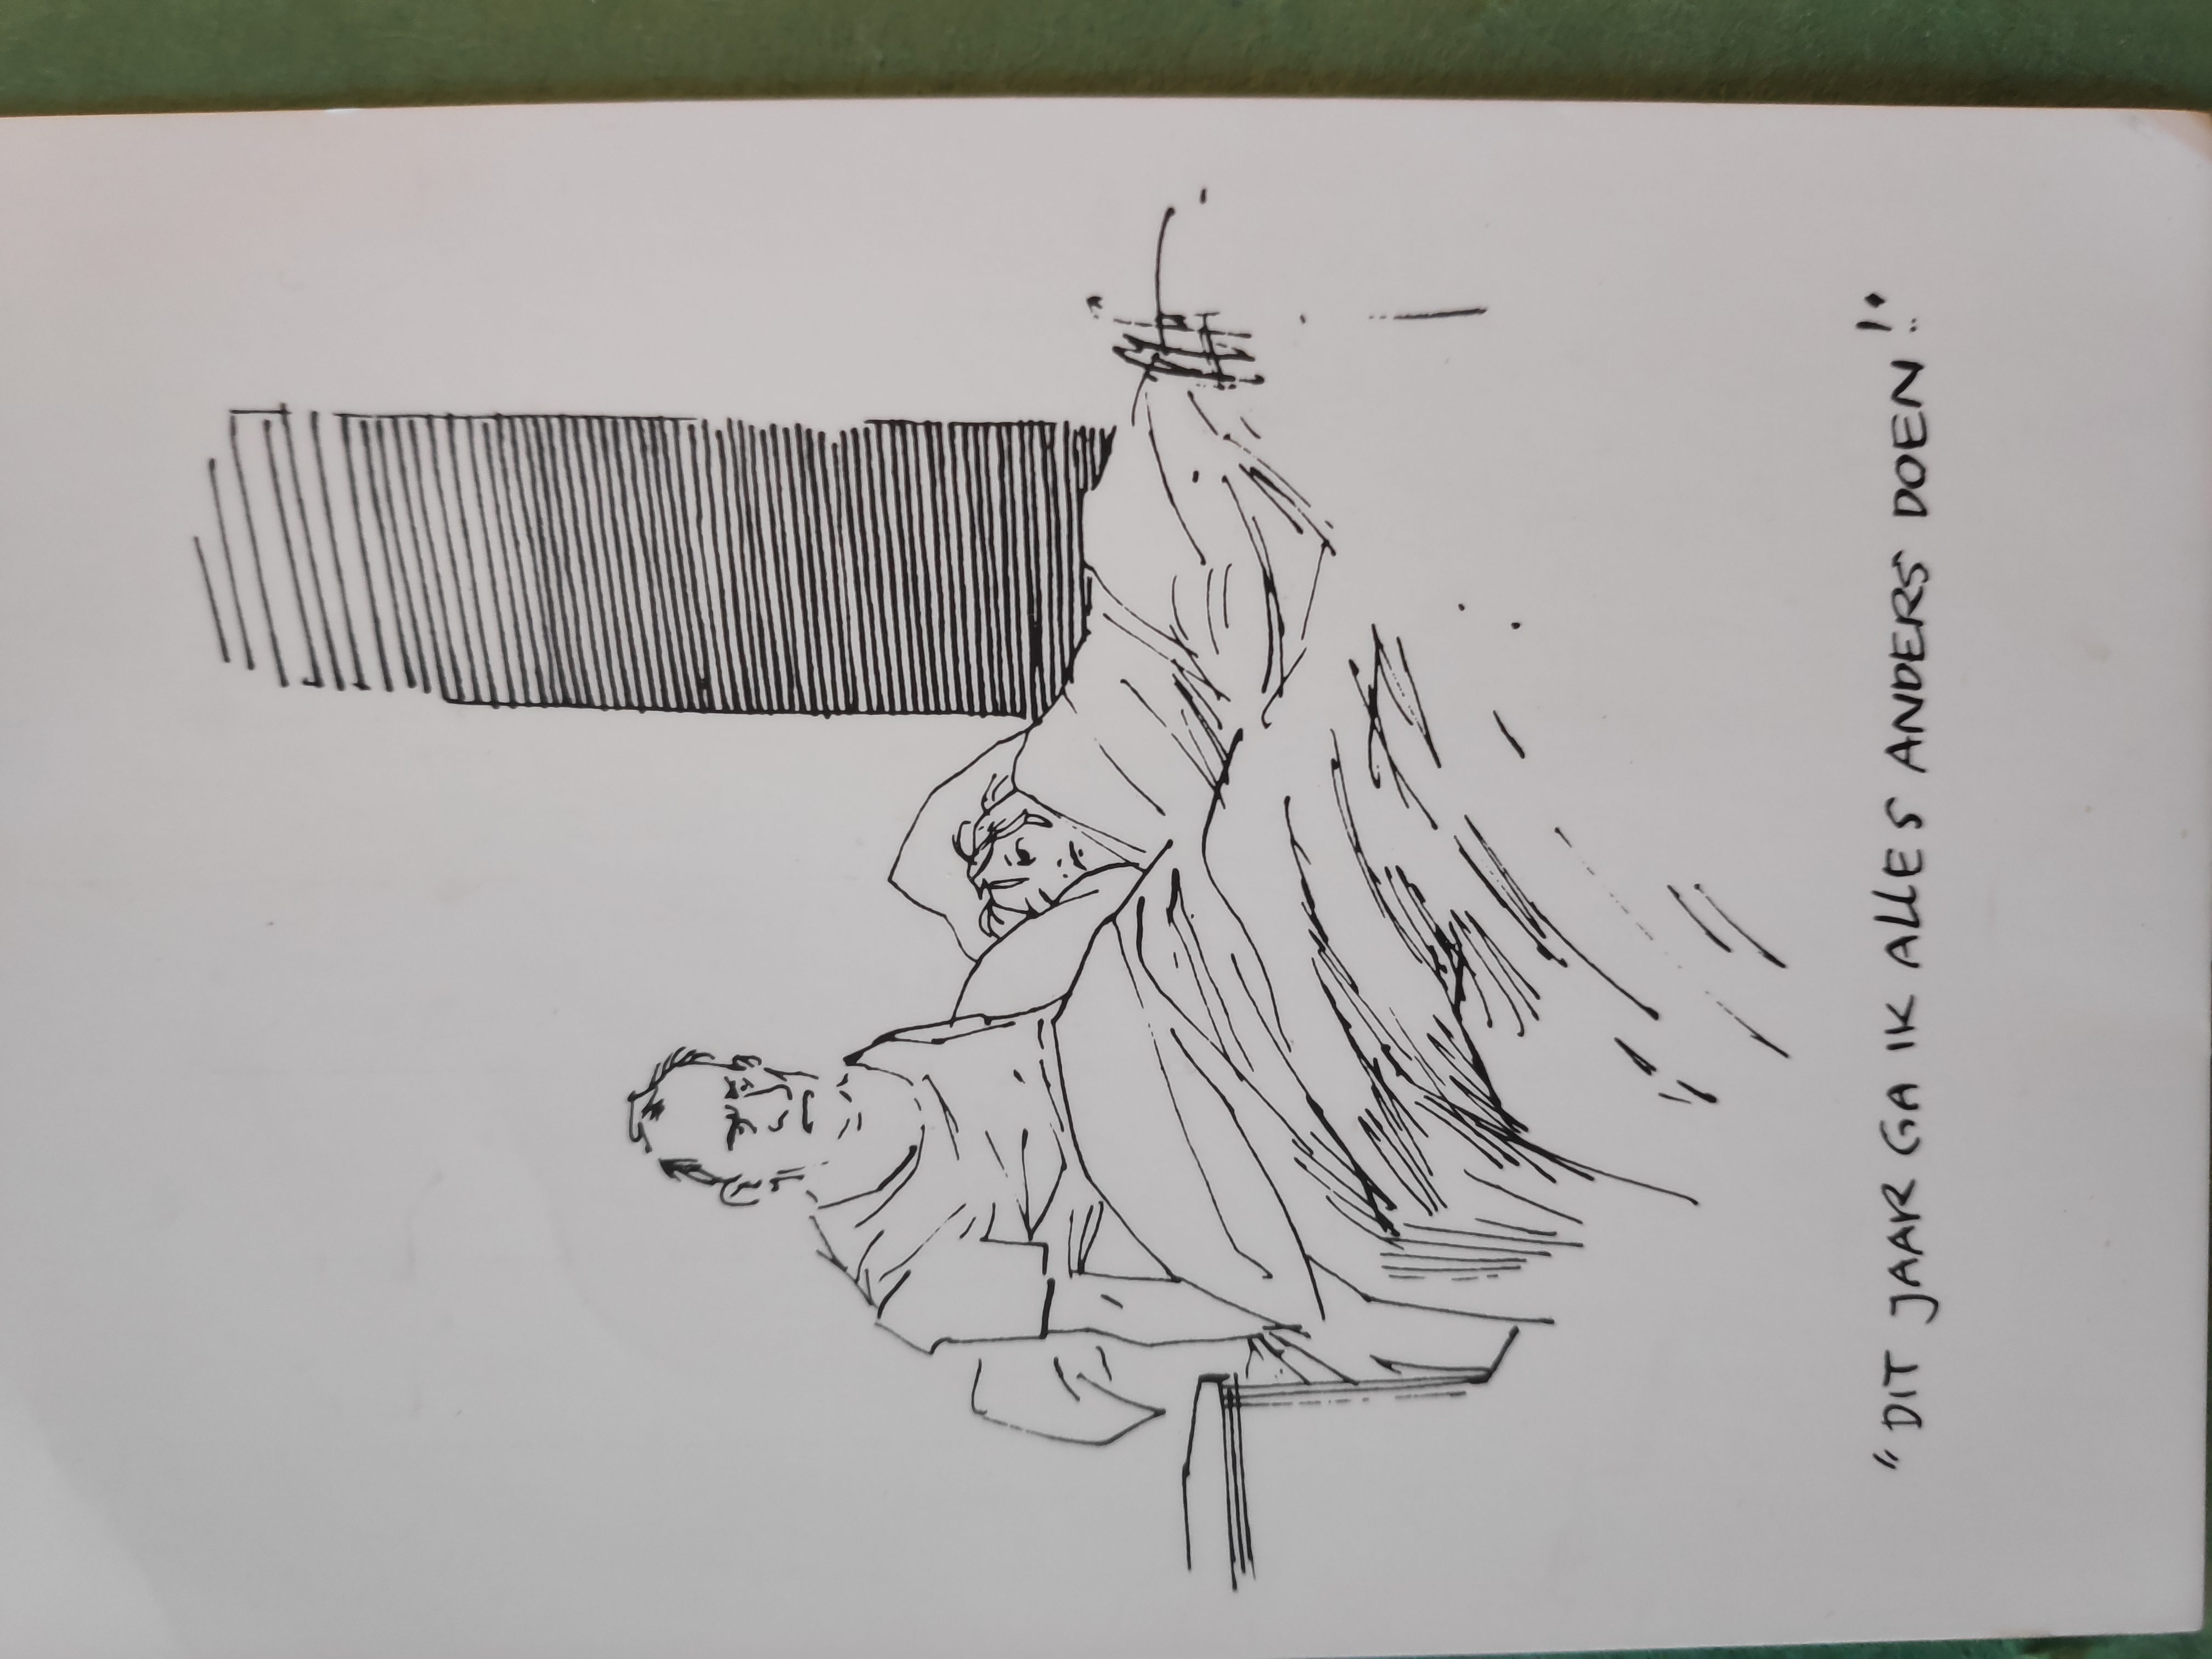 "DIT JAAR GA IK ALLES ANDERS DOEN!"